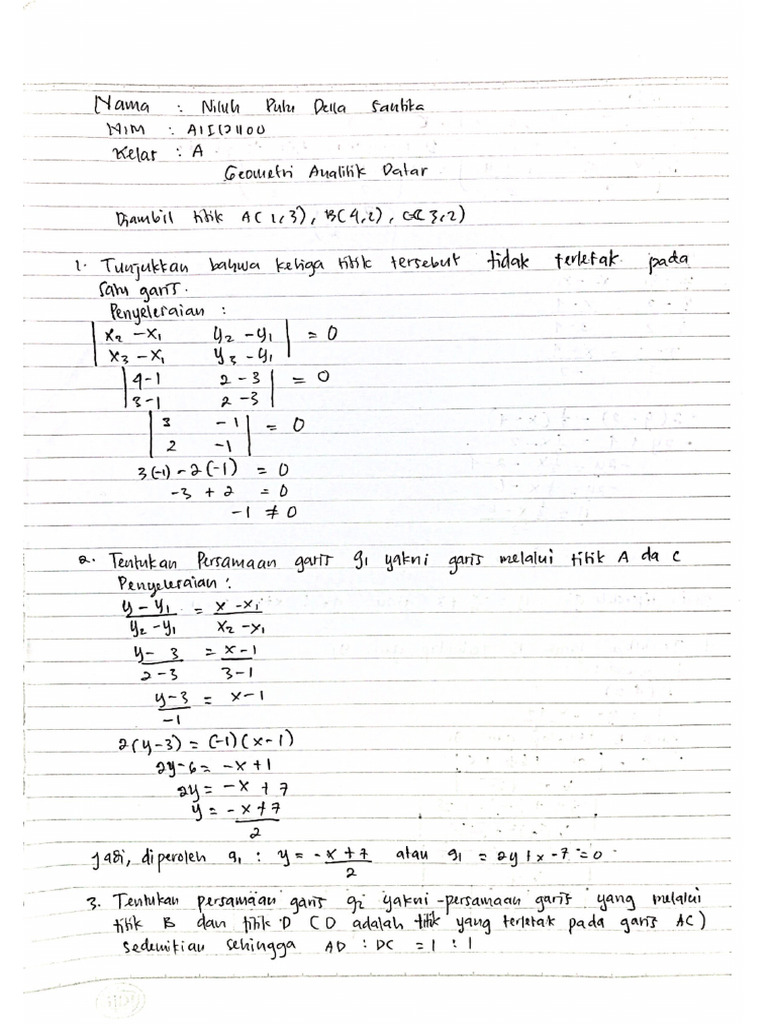 Nama : Niluh Putu Della Santika
NIM : A1I121100
Kelas : A
Geometri Analitik Datar
Diambil titik A(1,3), B(4,2), C(3,2)
1. Tunjukkan bahwa ketiga titik tersebut tidak terletak pada
satu garis.
Penyelesaian :
| x₂ - x₁   y₂ - y₁ | = 0
| x₃ - x₁   y₃ - y₁ |
| 4-1   2-3 | = 0
| 3-1   2-3 |
| 3   -1 | = 0
| 2   -1 |
3(-1) - 2(-1) = 0
-3 + 2 = 0
-1 ≠ 0
2. Tentukan Persamaan garis g₁ yakni garis melalui titik A da C
Penyelesaian :
y - y₁ = x - x₁
y₂ - y₁   x₂ - x₁
y - 3 = x - 1
2 - 3   3 - 1
y - 3 = x - 1
-1
2(y-3) = (-1)(x-1)
2y-6 = -x+1
2y = -x + 7
y = -x+7
2
Jadi, diperoleh g₁ : y = -x+7 atau g₁ = 2y+x-7 = 0
2
3. Tentukan persamaan garis g₂ yakni persamaan garis yang melalui
titik B dan titik D (D adalah titik yang terletak pada garis AC)
Sedemikian sehingga AD : DC = 1 : 1